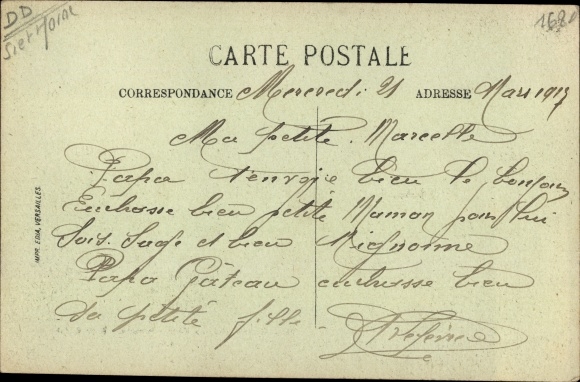 DD
168
CARTE POSTALE
CORRESPONDANCE Mercredi 21 ADRESSE Mars 1917
Ma petite Marcelle
Papa t'envoie bien le bonjour
Embrasse bien petite Maman pour lui
Sois Sage et bien Mignonne
Papa Gâteau embrasse bien
sa petite fille
IMPR. EDIA, VERSAILLES.